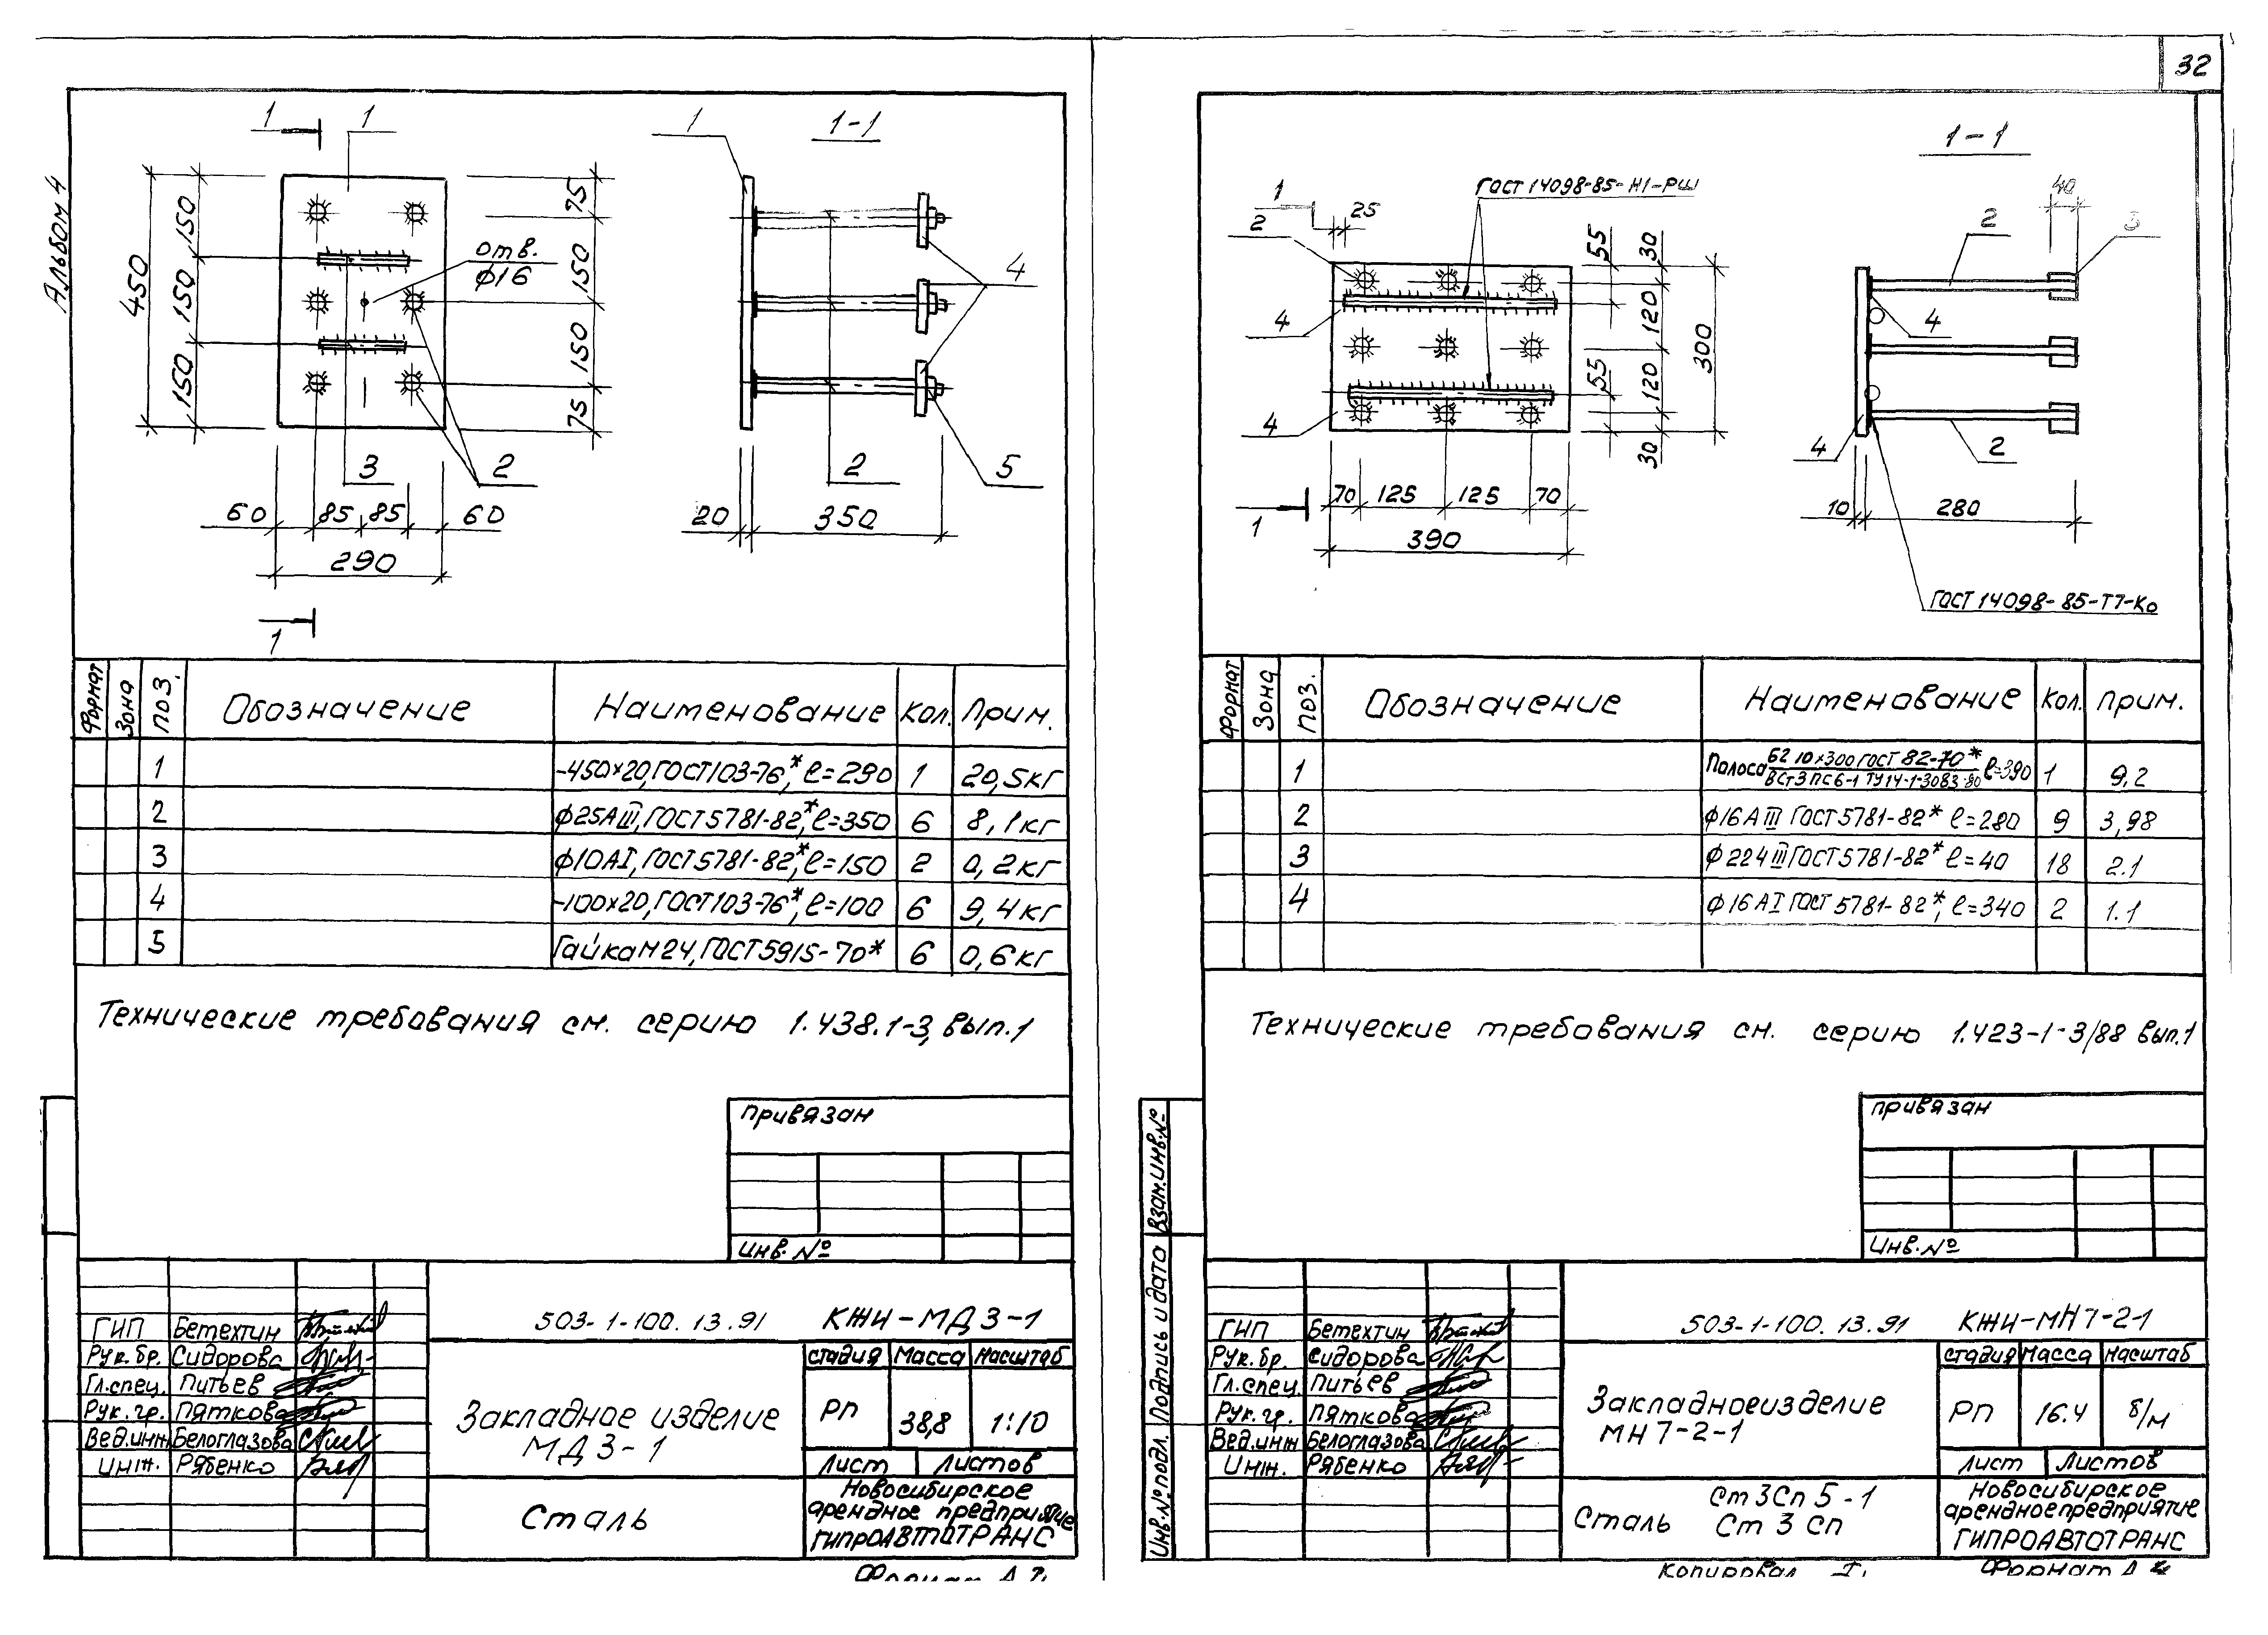 32
Альбом 4
1
1
1
1-1
450
150
150
150
75
150
150
75
отв.
ф16
4
3
2
2
5
60
85
85
60
290
20
350
1
Формат Зона Поз. Обозначение Наименование Кол. Прим.
1 -450×20, ГОСТ103-76*, ℓ=290 1 20,5кг
2 ф25АIII, ГОСТ5781-82*, ℓ=350 6 8,1кг
3 ф10АI, ГОСТ5781-82*, ℓ=150 2 0,2кг
4 -100×20, ГОСТ103-76*, ℓ=100 6 9,4кг
5 Гайка М24, ГОСТ5915-70* 6 0,6кг
Технические требования см. серию 1.438.1-3, вып.1
Привязан
Инв. №
503-1-100.13.91 КЖИ-МД3-1
ГИП Бетехтин
Рук.бр. Сидорова
Гл.спец. Питьев
Рук.гр. Пяткова
Вед.инж Белоглазова
Инж. Рябенко
Закладное изделие
МД3-1
Стадия Масса Масштаб
РП 38,8 1:10
Лист Листов
Сталь
Новосибирское
арендное предприятие
ГИПРОАВТОТРАНС
1-1
ГОСТ 14098-85-Н1-РШ
1
2
25
4
4
55
55
30
120
120
30
300
70
125
125
70
390
1
40
2
3
4
4
2
10
280
ГОСТ 14098-85-Т7-Ко
Формат Зона Поз. Обозначение Наименование Кол. Прим.
1 Полоса Б2 10×300 ГОСТ 82-70* ℓ=390 1 9,2
ВСт3пс6-1 ТУ14-1-3083-80
2 ф16АIII ГОСТ5781-82* ℓ=280 9 3,98
3 ф22АIII ГОСТ5781-82* ℓ=40 18 2.1
4 ф16АI ГОСТ 5781-82*, ℓ=340 2 1.1
Технические требования см. серию 1.423-1-3/88 вып.1
Привязан
Инв.№
Взам.инв.№
Подпись и дата
Инв.№подл.
503-1-100.13.91 КЖИ-МН7-2-1
ГИП Бетехтин
Рук.бр. Сидорова
Гл.спец. Питьев
Рук.гр. Пяткова
Вед.инж Белоглазова
Инж. Рябенко
Закладное изделие
МН7-2-1
Стадия Масса Масштаб
РП 16.4 б/м
Лист Листов
Сталь Ст3Сп5-1
Ст3Сп
Новосибирское
арендное предприятие
ГИПРОАВТОТРАНС
Копировал
Формат А4